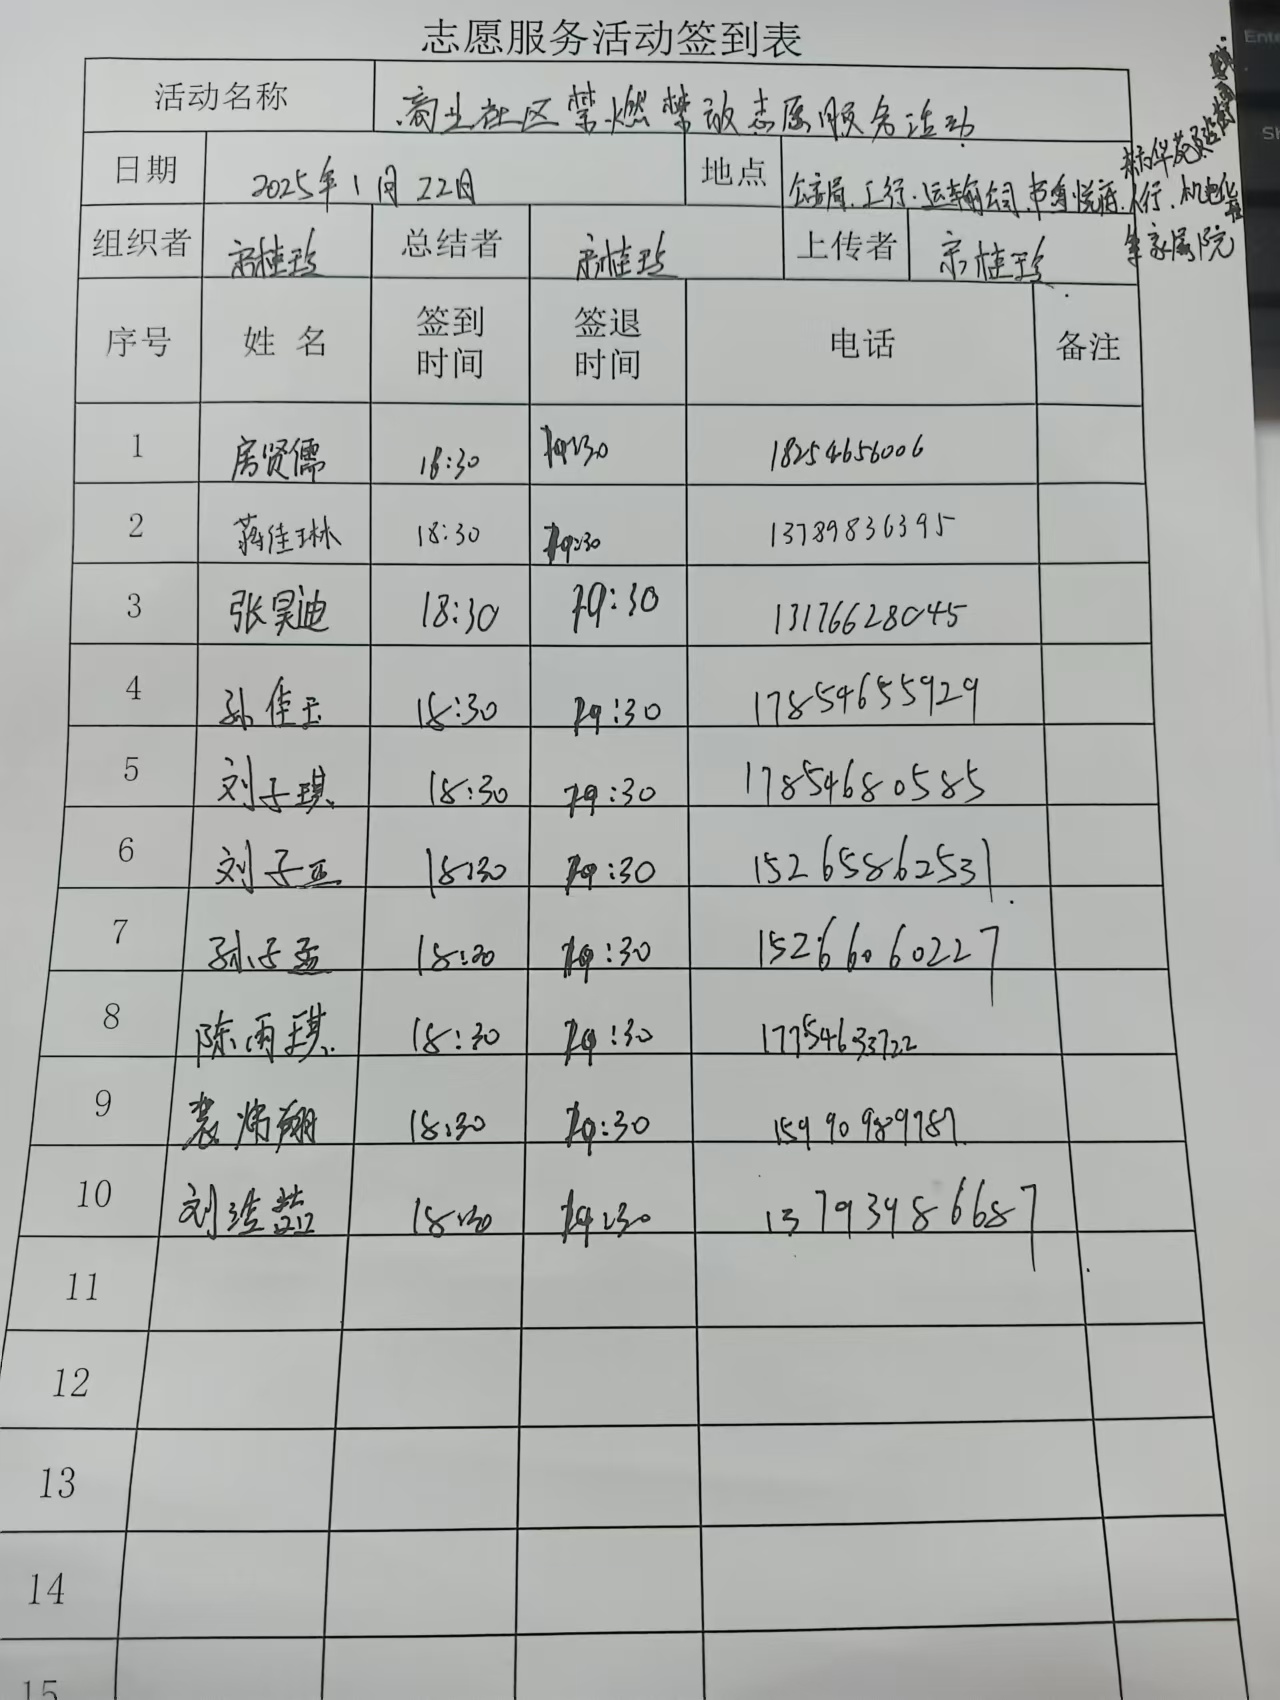 志愿服务活动签到表
活动名称 商业社区禁燃禁放志愿服务活动
日期 2025年1月22日 地点 公安局.工行.运输公司.书香悦府.人行.机电化
家属院
组织者 宗桂珍 总结者 宗桂珍 上传者 宗桂珍
序号 姓名 签到时间 签退时间 电话 备注
1 房贤儒 18:30 19:30 18254656006
2 蒋佳琳 18:30 19:30 13789836395
3 张昊迪 18:30 19:30 13176628045
4 孙佳玉 18:30 19:30 17854655929
5 刘子琪 18:30 19:30 17854680585
6 刘子正 18:30 19:30 15265862531
7 孙子孟 18:30 19:30 15266060227
8 陈雨琪 18:30 19:30 17754633722
9 裴炜翔 18:30 19:30 15990989787
10 刘浩喆 18:30 19:30 13793486687
11
12
13
14
15
Ente